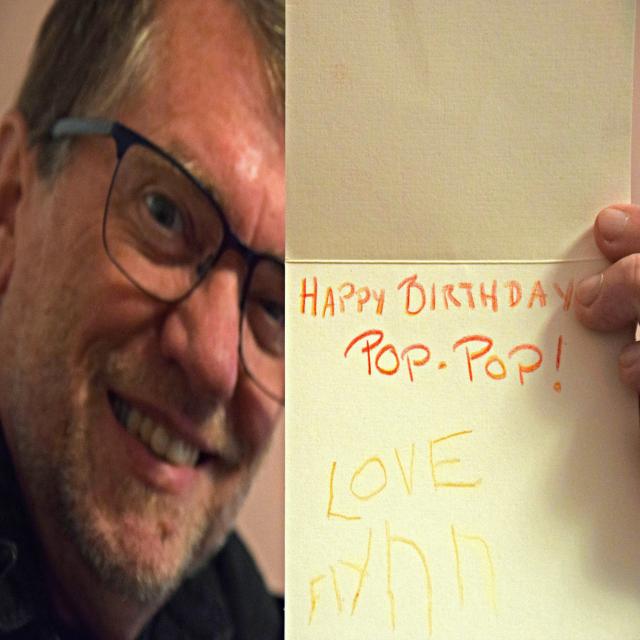 HAPPY BIRTHDAY
POP-POP!
LOVE